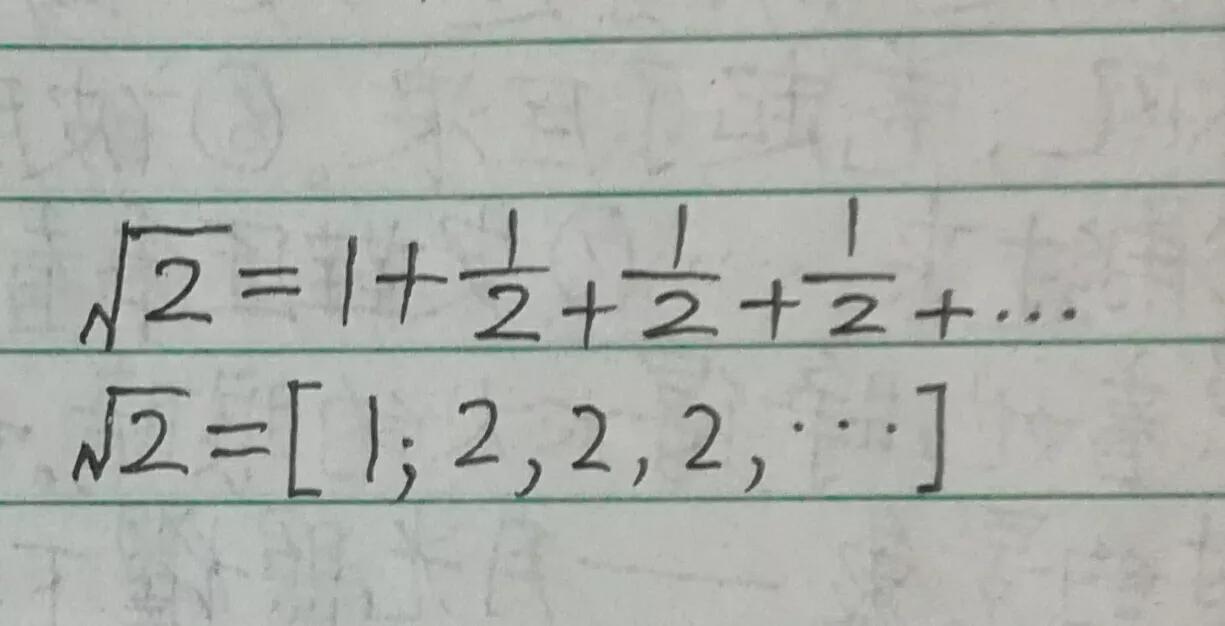 √2 = 1 + 1/2 + 1/2 + 1/2 + ...
√2 = [1; 2, 2, 2, ...]